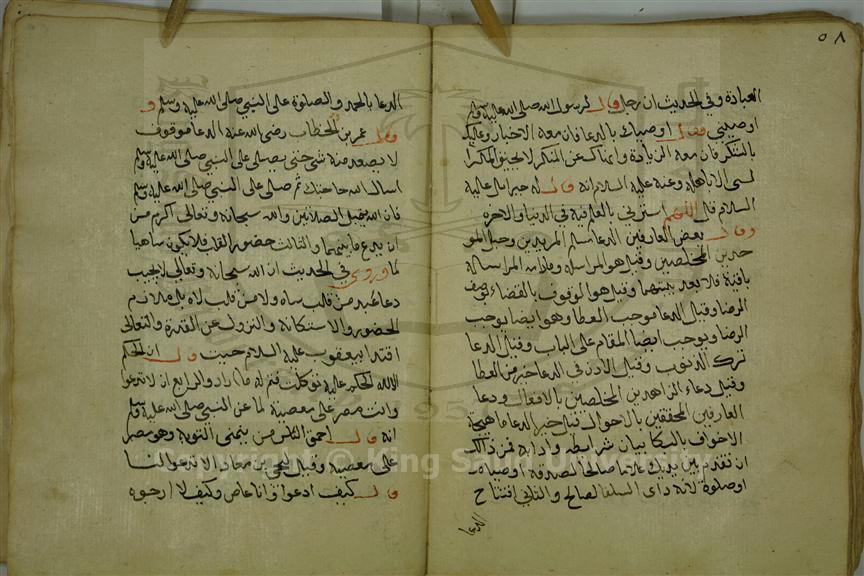 ٥٨
العبادة وفي الحديث ان رجل قال لرسول الله صلى الله عليه وسلم
اوصيني فقال اوصيك بالدعا فان معه الاخبار وعليك
بالشكر فان معه الزيادة وانهاك عن المنكر لا يحيق المكر
لسى الا باهله وعنه عليه السلام انه قال له جبرايل عليه
السلام قال اللهم استرني بالعافية في الدنيا والاخرة
وقال بعض العارفين الدعا سلم المريدين وحبل المو
حدين المخلصين وقيل هو المراسلة وما دامه المراسلة
باقية فلا بعد بينهما وقيل هو الوقوف بالقضاء بوصف
الرضا وقيل الدعا موجب العطا وهو ايضا يوجب
الرضا ويوجب ايضا المقام على الباب وقيل الدعا
ترك الذنوب وقيل الاذن في الدعا خير من العطا
وقيل دعاء الزاهدين المخلصين بالافعال ودعا
العارفين المحققين بالاحوال قيل خير الدعا ما هيجه
الاخوف بالبكا بيان شرايطه وادابه فمن ذالك
ان تقدم بين يديك عملا صالحا كصدقة او صيام
او صلوة لانه داى السلف الصالح والثاني افتتاح
الدعا
الدعا بالحمد والصلوة على النبي صلى الله عليه وسلم و
قال عمر بن الخطاب رضي الله عنه الدعا موقوف
لا يصعد منه شى حتى يصلى على النبي صلى الله عليه وسلم
اسال الله حاجتك ثم صلى على النبي صلى الله عليه وسلم
فان الله يقبل الصلاتين والله سبحانه وتعالى اكرم من
ان يدع ما بينهما والثالث حضور القلب فلا يكون ساهيا
لما وروى في الحديث ان الله سبحانه وتعالى لا يجيب
دعا عبد من قلب ساه ولا من قلب لاه بل ملازم
للحضور والاستكانة والنزول عن القدرة والتعالى
اقتدا بيعقوب عليه السلام حيث قال ان الحكم
الا لله الحكم عليه توكلت فتم له ما اراد والرابع ان لا تدعوا
وانت مصر على معصية لما عن النبي صلى الله عليه وسلم
انه قال احمق الناس من يتمنى التوبة وهو مصر
على معصية وقيل ليحيى بن معاذ الا تدعو لنا
قال كيف ادعوا وانا عاص وكيف لا ارجوه
Copyright © King Saud University
1957